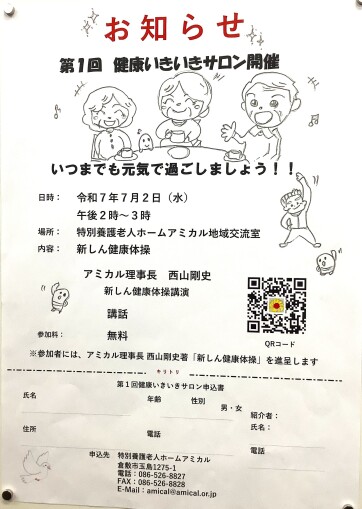 お知らせ
第1回 健康いきいきサロン開催
いつまでも元気で過ごしましょう!!
日時: 令和7年7月2日(水)
午後2時~3時
場所: 特別養護老人ホームアミカル地域交流室
内容: 新しん健康体操
アミカル理事長 西山剛史
新しん健康体操講演
講話
参加料: 無料
QRコード
※参加者には、アミカル理事長 西山剛史著「新しん健康体操」を進呈します
キリトリ
第1回健康いきいきサロン申込書
氏名 年齢 性別
男・女
紹介者:
氏名:
住所 電話 電話
申込先 特別養護老人ホームアミカル
倉敷市玉島1275-1
電話:086-526-8827
FAX:086-526-8828
E-Mail:amical@amical.or.jp